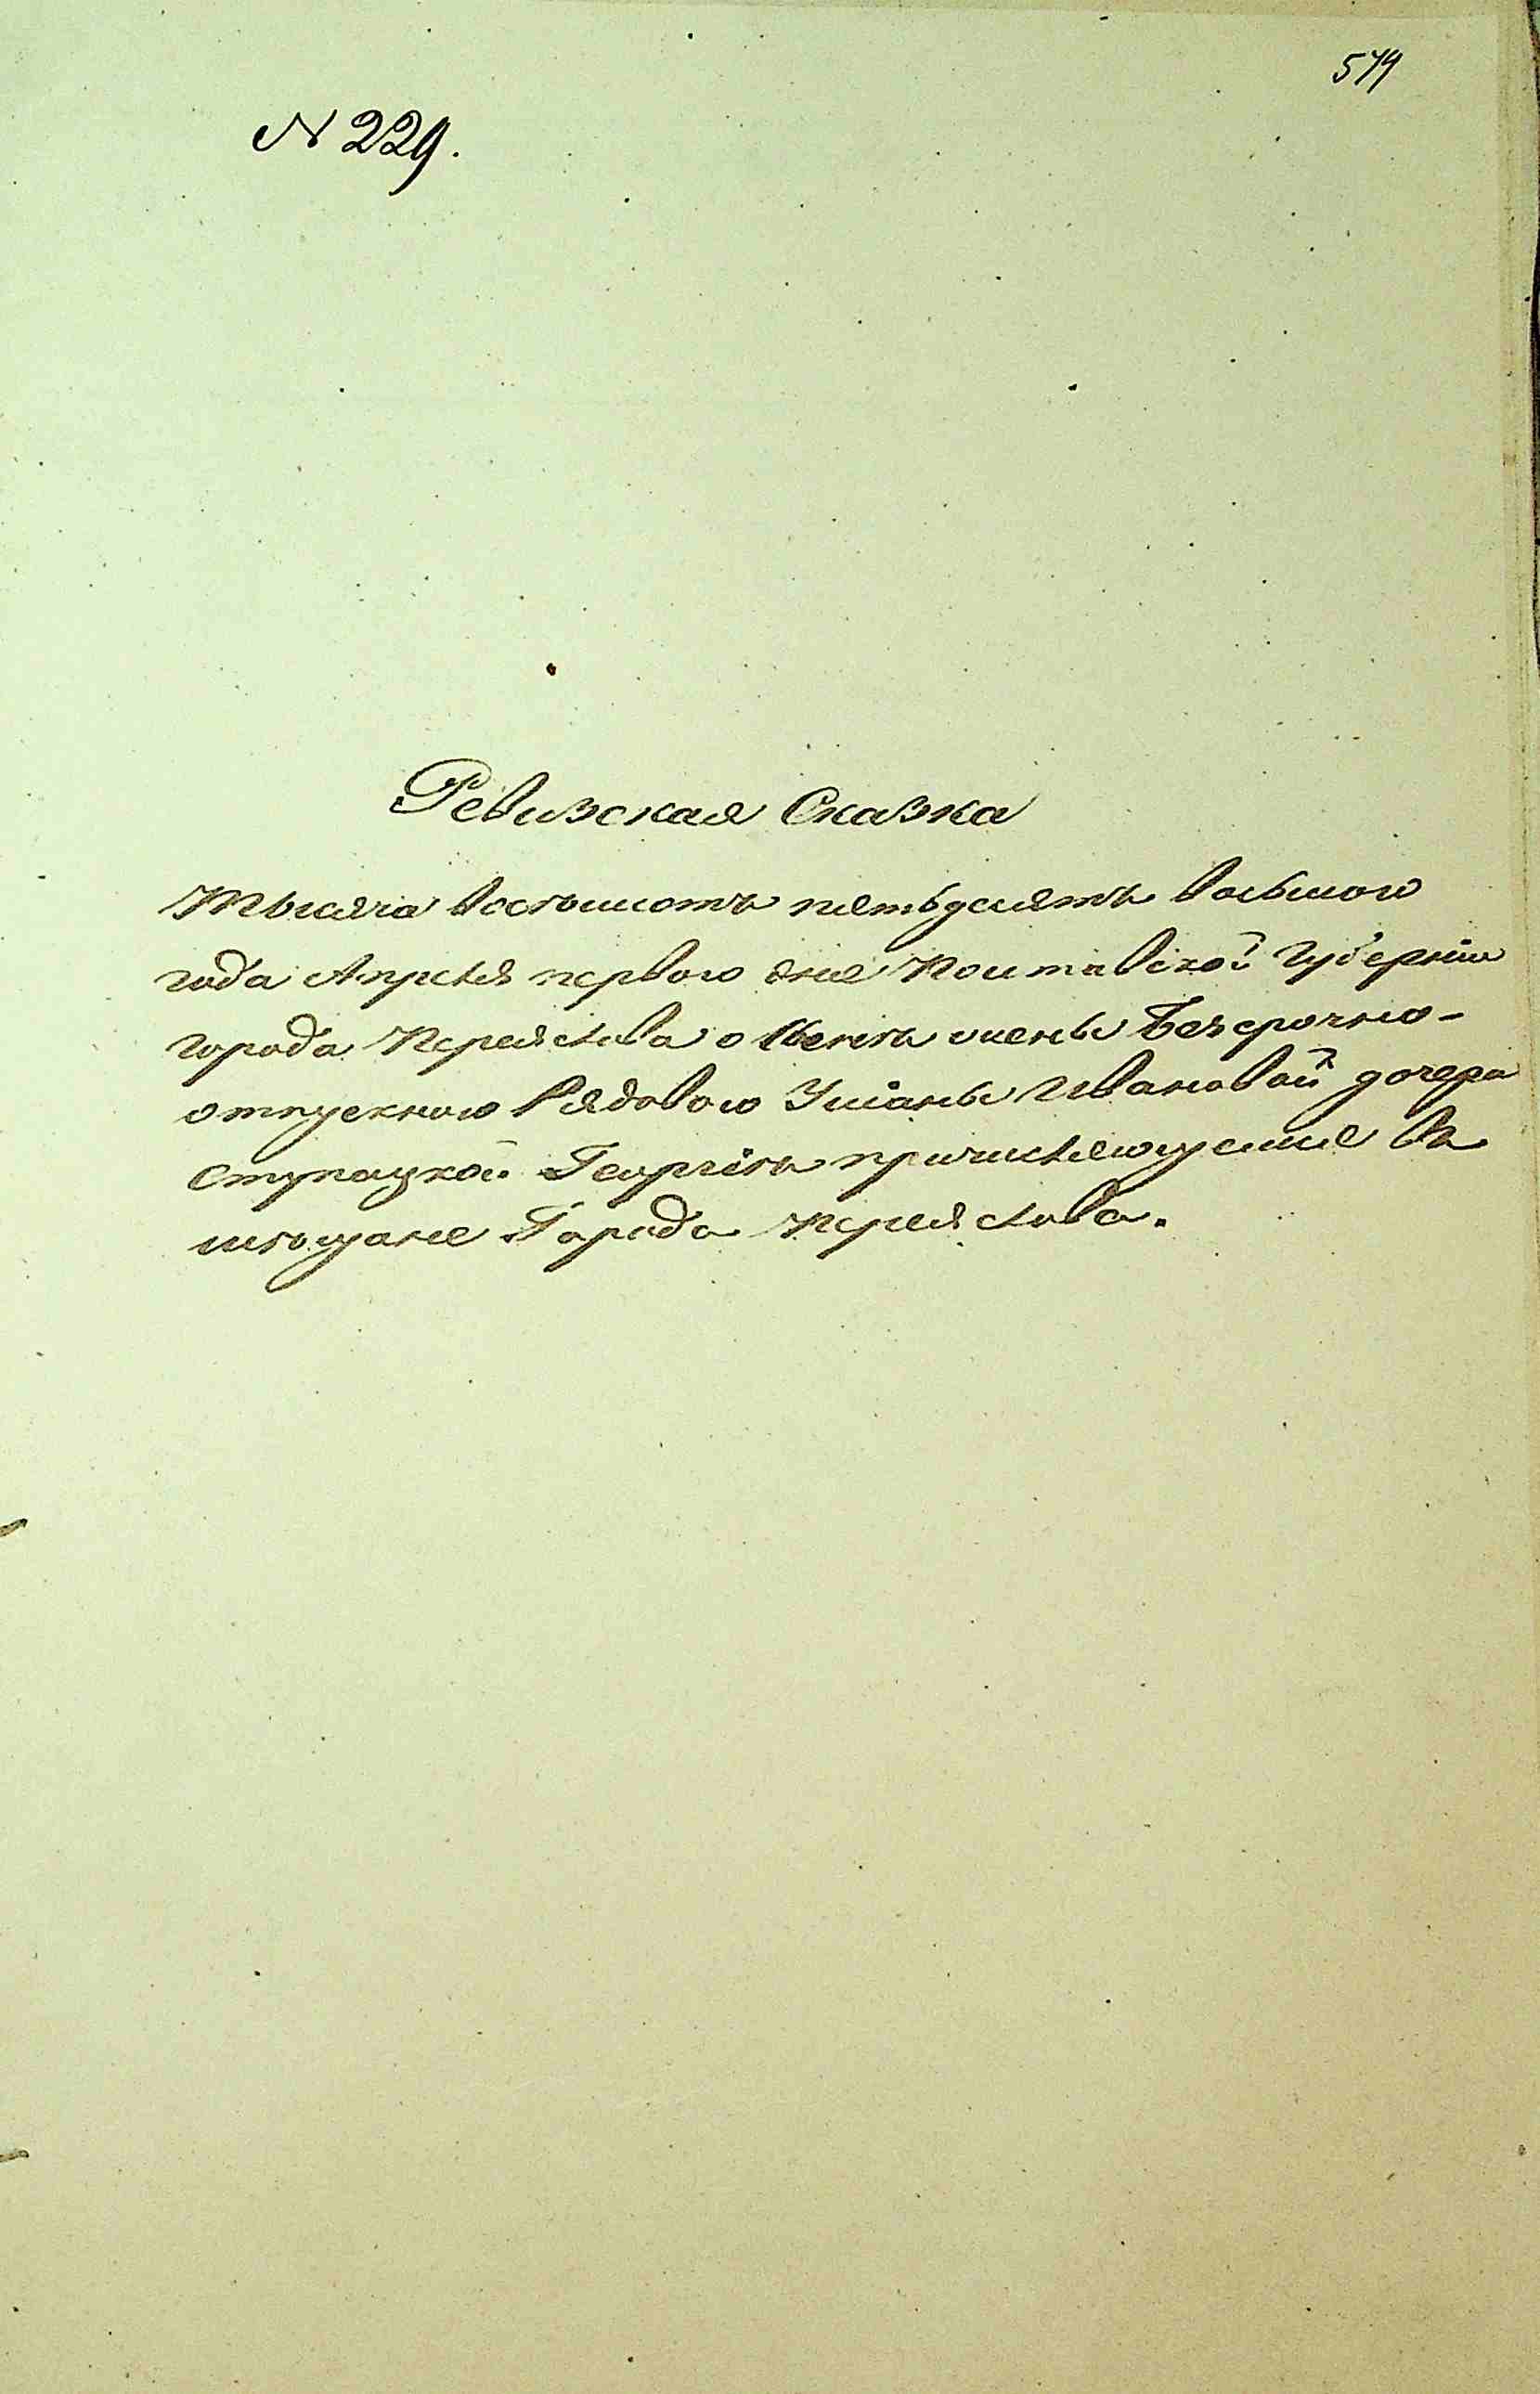 579
N 229.
Ревизская Сказка
Тысяча восемьсотъ пятьдесятъ восьмого
года Апреля перваго дня Полтавской Губерніи
города Переяслова о сынѣ жены Безсрочно-
отпускного Рядоваго Ульяны Ивановой дочери
Ступацкой Георгіѣ причисляющемся въ
мѣщане Города Переяслова.